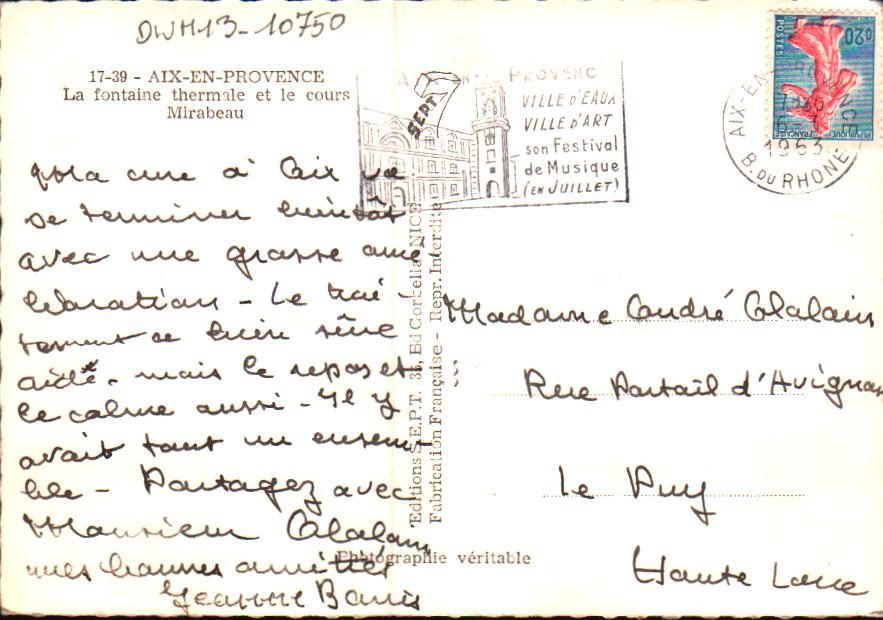 DWM13-10750
17-39 - AIX-EN-PROVENCE
La fontaine thermale et le cours
Mirabeau
PROVENC
VILLE D'EAUX
VILLE D'ART
son Festival
de Musique
(EN JUILLET)
SEPT
POSTES
0,20
REPUBLIQUE FRANÇAISE
AIX-EN-PROVENCE
1963
B. DU RHONE
Ma cure à Aix va
se terminer bientôt
avec une grosse amé
lioration - Le trai-
tement a bien sûre
aidé, mais le repos et
le calme aussi - Il y
avait tout un ensem-
ble - Partagez avec
Monsieur
mes bonnes amitiés
Jeanne
Editions S.E.P.T. 35, Ed Gorbella NICE
Fabrication Française - Repr. Interdite
Photographie véritable
Madame André
Rue Portail d'Avignon
Le Puy
Haute Loire